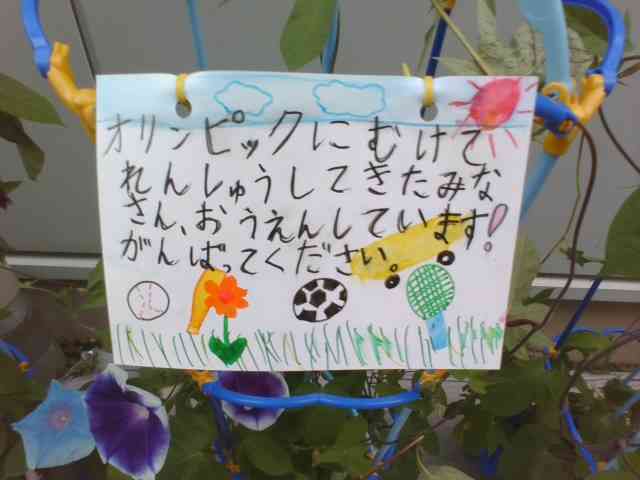 オリンピックにむけて
れんしゅうしてきたみな
さん、おうえんしています!
がんばってください。